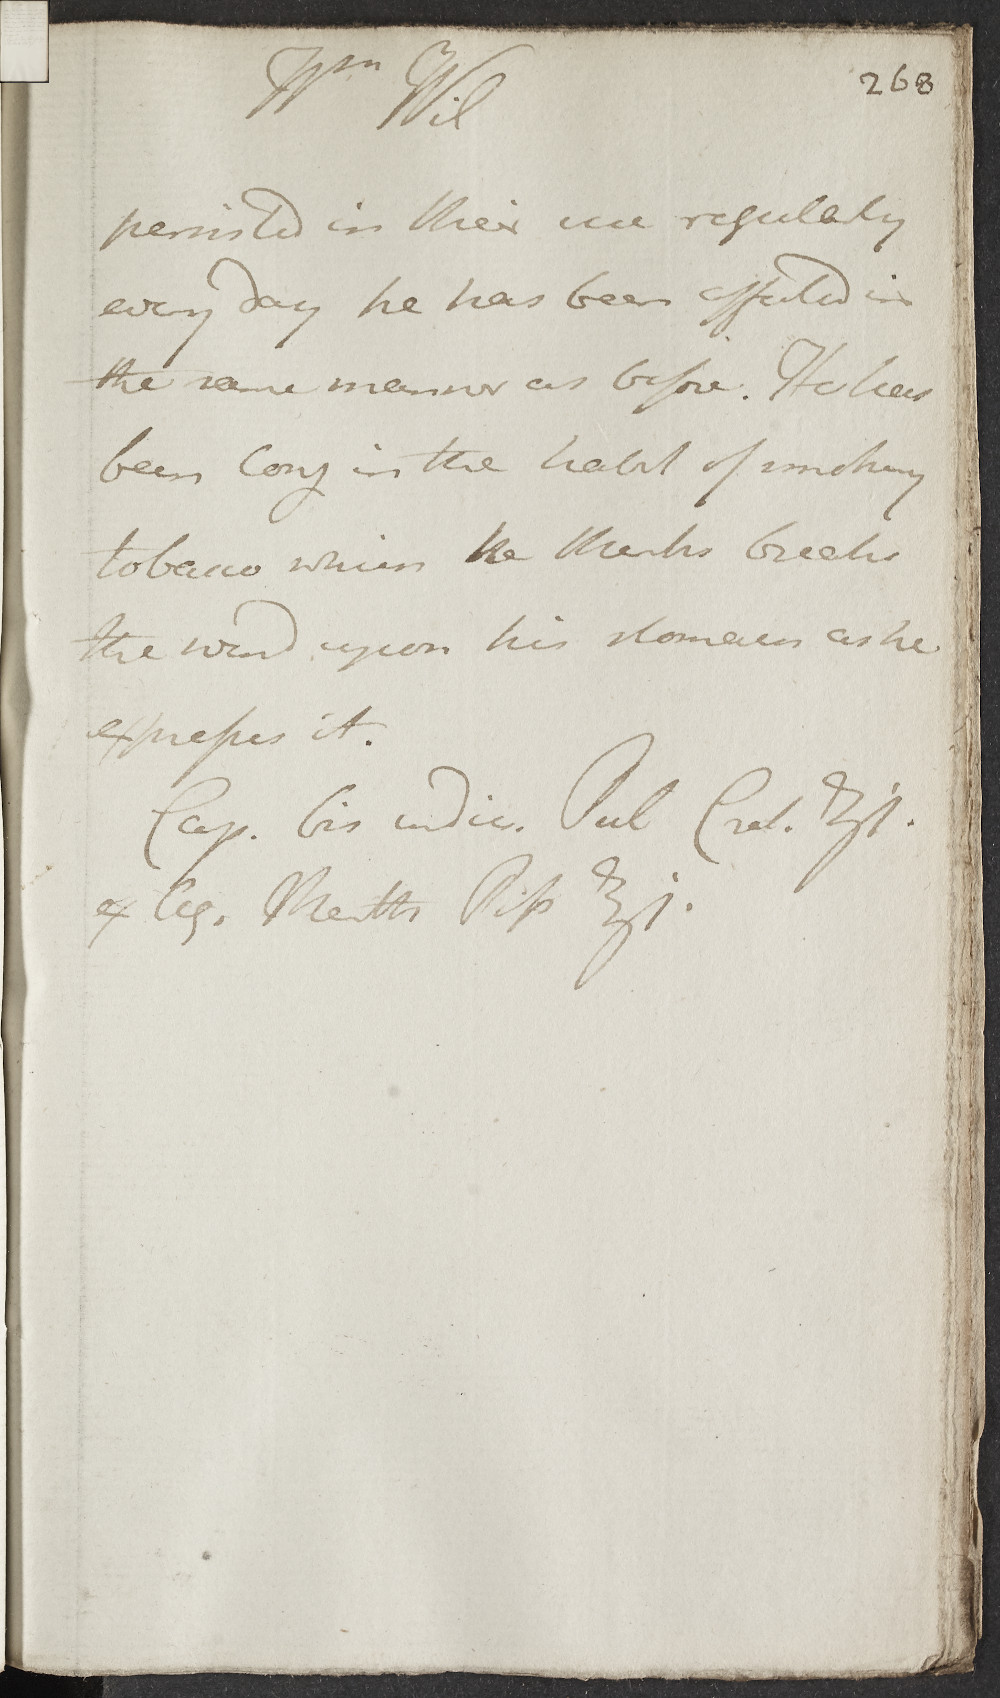 Wm Wil
268
persisted in their use regularly
every day he has been affected in
the same manner as before. He has
been long in the habit of smoking
tobacco which he thinks breaks
the wind upon his stomach as he
expresses it.
Cap. bis indies. Pul Cret. ʒj.
ex Aq. Menth Pip ℥j.